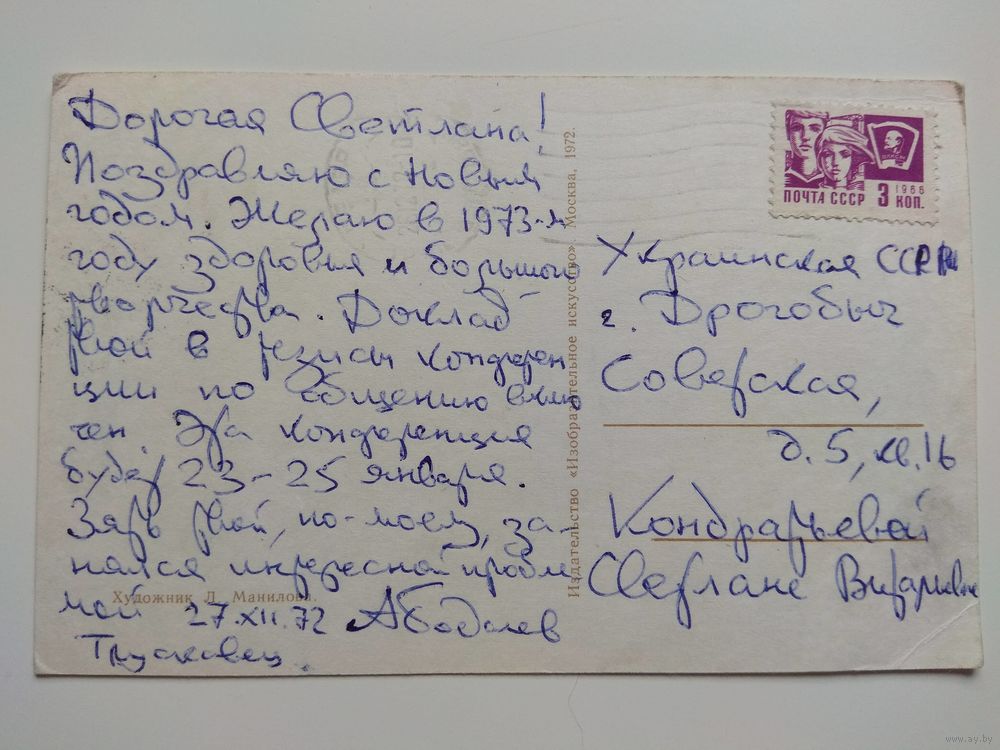 Дорогая Светлана!
Поздравляю с Новым
годом. Желаю в 1973-м
году здоровья и большого
творчества. Доклад
твой в тезисы конферен
ции по общению вклю
чен. Эта конференция
будет 23-25 января.
Зять твой, по-моему, за-
нялся интересной пробле
мой 27.XII.72
Трускавец.
Художник Л. Манилова.
Издательство «Изобразительное искусство». Москва, 1972.
ПОЧТА СССР 3 КОП.
1966
ВЛКСМ
Украинская ССР
г. Дрогобыч
Советская,
д. 5, кв. 16
Кондратьевой
Светлане
www.ay.by